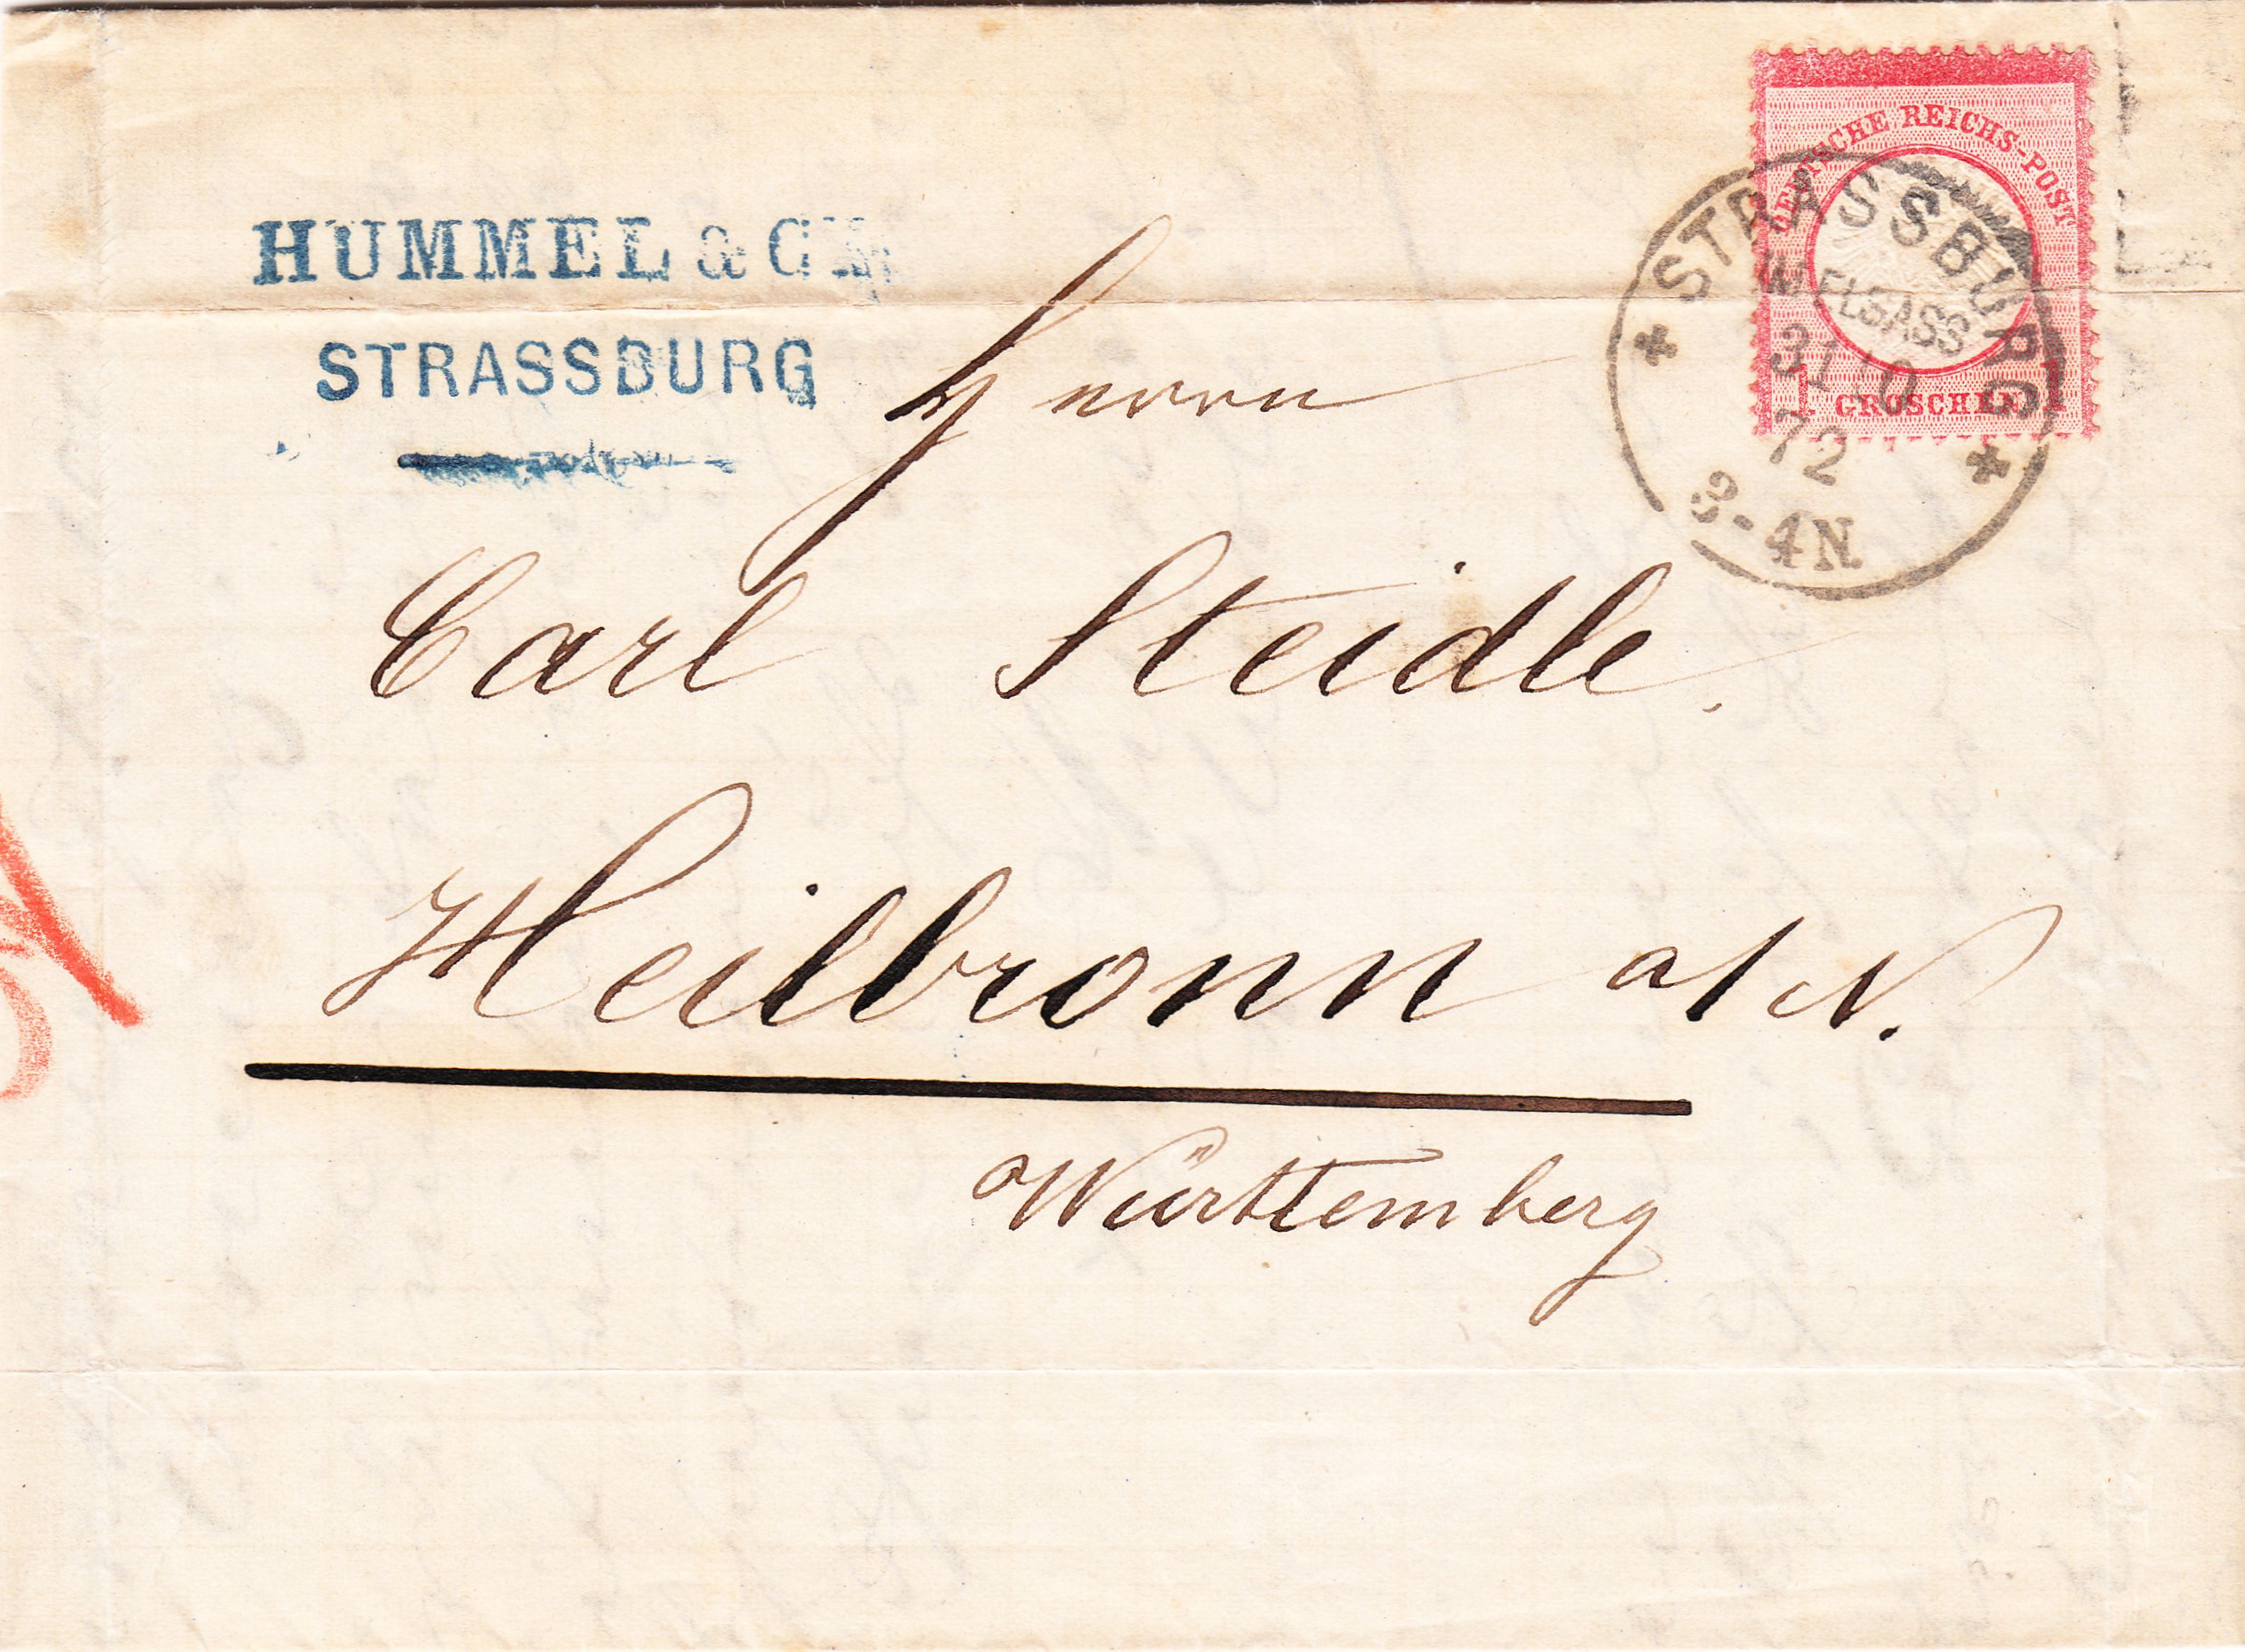 HUMMEL & C
STRASSBURG
DEUTSCHE REICHS-POST
1 GROSCHEN 1
STRASSBURG
IM ELSASS
31 10
72
3-4N.
Herrn
Carl Steidle.
Heilbronn a/N.
Württemberg